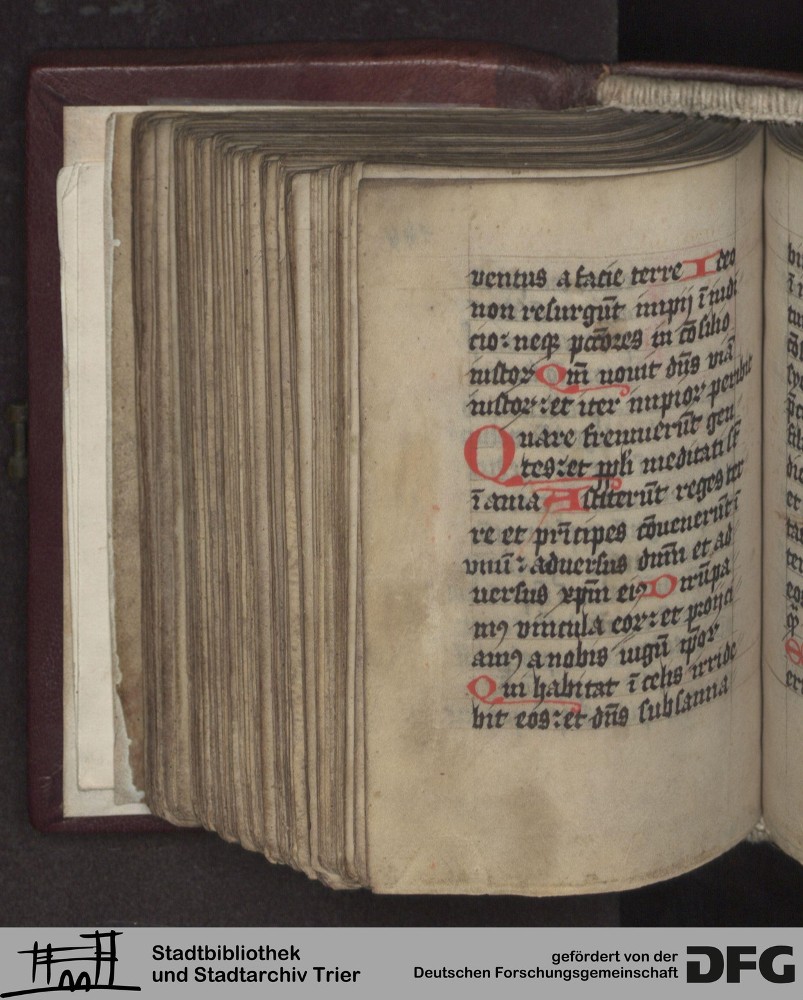 ventus a facie terre Ideo
non resurgūt impij ī iudi
cio : neqꝫ pctōres in cōsilio
iustoꝝ Qm̄ nouit dn̄s viā
iustoꝝ : et iter impioꝝ peribit
Quare fremuerūt gen
tes : et ppl̄i meditati st̄
īania Astiterūt reges ter
re et prīcipes cōuenerūt ī
vnū : aduersus dn̄m et ad
uersus xp̄m eiꝰ Dirūpa
mꝰ vincula eoꝝ : et proijci
amꝰ a nobis iugū ip̄oꝝ
Qui habitat ī celis irride
bit eos : et dn̄s subsanna
Stadtbibliothek
und Stadtarchiv Trier
gefördert von der
Deutschen Forschungsgemeinschaft
DFG